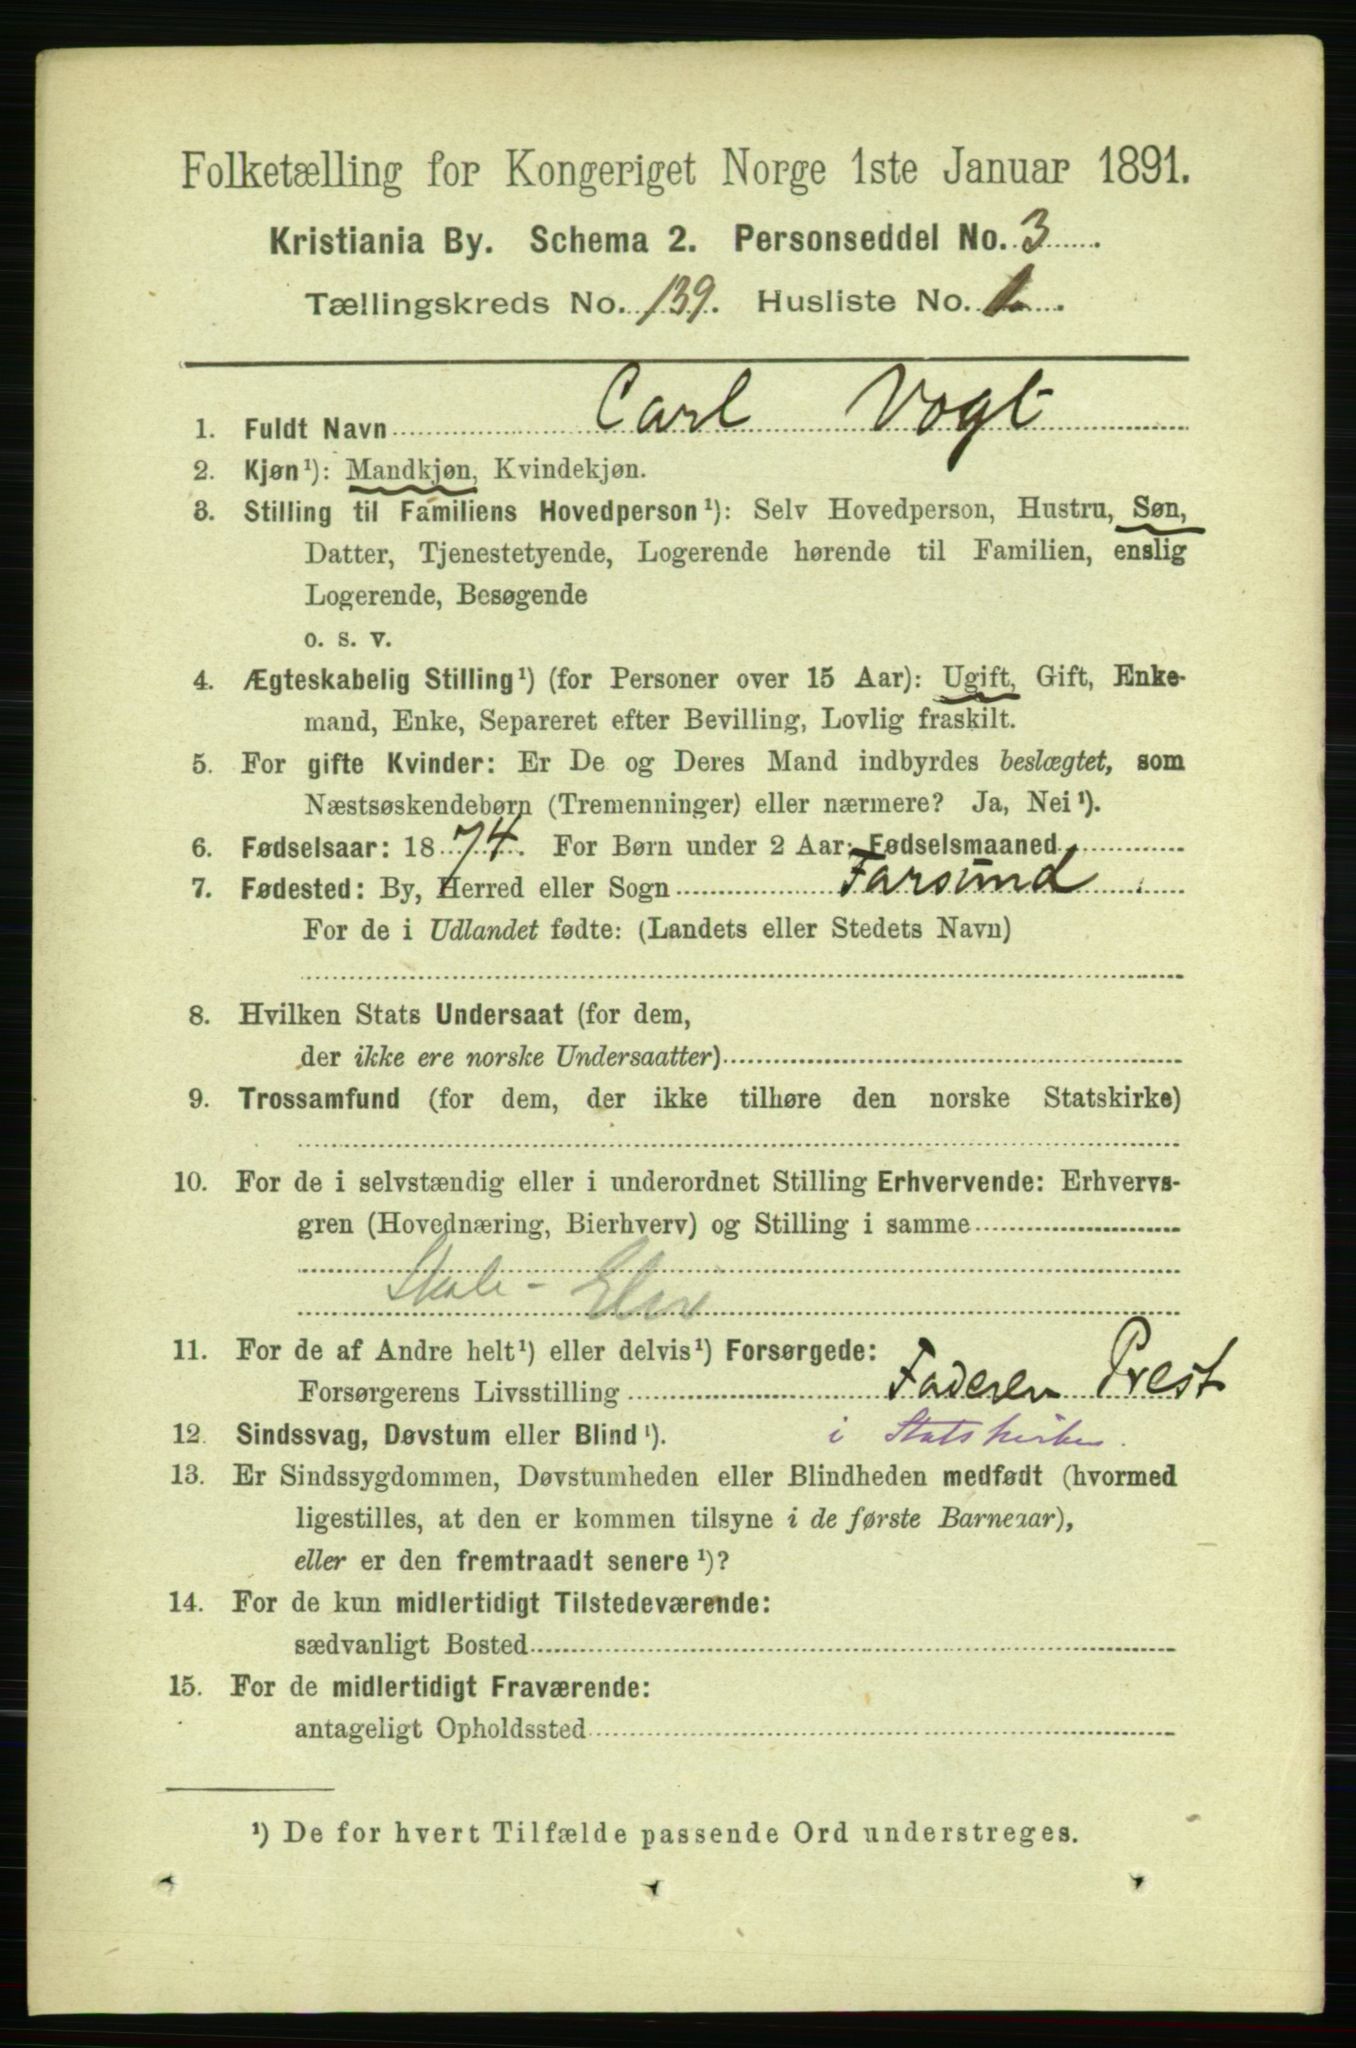 Folketælling for Kongeriget Norge 1ste Januar 1891.
Kristiania By. Schema 2. Personseddel No. 3
Tællingskreds No. 139. Husliste No. 1.
1. Fuldt Navn Carl Vogt
2. Kjøn¹): Mandkjøn, Kvindekjøn.
3. Stilling til Familiens Hovedperson¹): Selv Hovedperson, Hustru, Søn,
Datter, Tjenestetyende, Logerende hørende til Familien, enslig
Logerende, Besøgende
o. s. v.
4. Ægteskabelig Stilling¹) (for Personer over 15 Aar): Ugift, Gift, Enke-
mand, Enke, Separeret efter Bevilling, Lovlig fraskilt.
5. For gifte Kvinder: Er De og Deres Mand indbyrdes beslægtet, som
Næstsøskendebørn (Tremenninger) eller nærmere? Ja, Nei¹).
6. Fødselsaar: 1874. For Børn under 2 Aar: Fødselsmaaned
7. Fødested: By, Herred eller Sogn Farsund
For de i Udlandet fødte: (Landets eller Stedets Navn)
8. Hvilken Stats Undersaat (for dem,
der ikke ere norske Undersaatter)
9. Trossamfund (for dem, der ikke tilhøre den norske Statskirke)
10. For de i selvstændig eller i underordnet Stilling Erhvervende: Erhvervs-
gren (Hovednæring, Bierhverv) og Stilling i samme
Skole-Elev
11. For de af Andre helt¹) eller delvis¹) Forsørgede:
Forsørgerens Livsstilling Faderen Prest
12. Sindssvag, Døvstum eller Blind¹). i Statskirken.
13. Er Sindssygdommen, Døvstumheden eller Blindheden medfødt (hvormed
ligestilles, at den er kommen tilsyne i de første Barneaar),
eller er den fremtraadt senere¹)?
14. For de kun midlertidigt Tilstedeværende:
sædvanligt Bosted
15. For de midlertidigt Fraværende:
antageligt Opholdssted
¹) De for hvert Tilfælde passende Ord understreges.